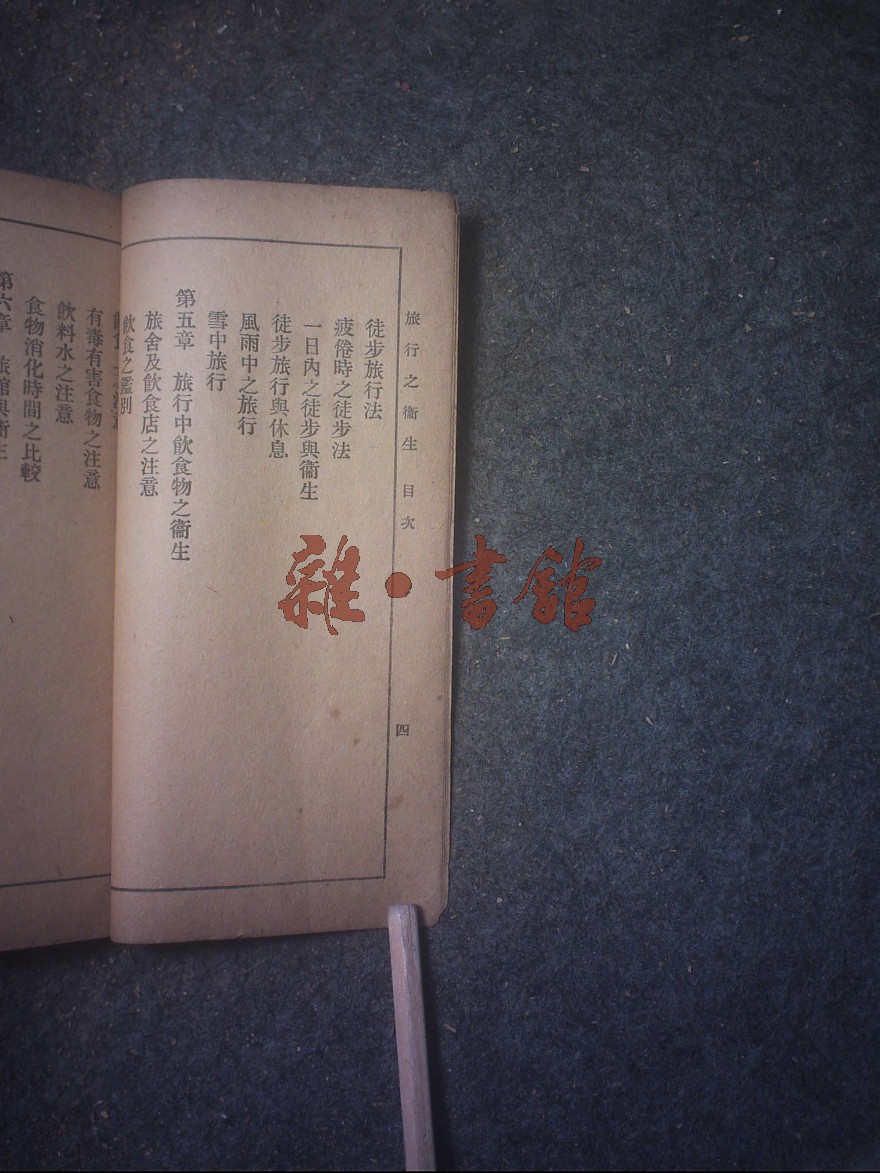 旅行之衞生 目次
四
徒步旅行法
疲倦時之徒步法
一日內之徒步與衞生
徒步旅行與休息
風雨中之旅行
雪中旅行
第五章 旅行中飲食物之衞生
旅舍及飲食店之注意
飲食之鑑別
有毒有害食物之注意
飲料水之注意
食物消化時間之比較
第六章 旅館與衞生
雜·書館